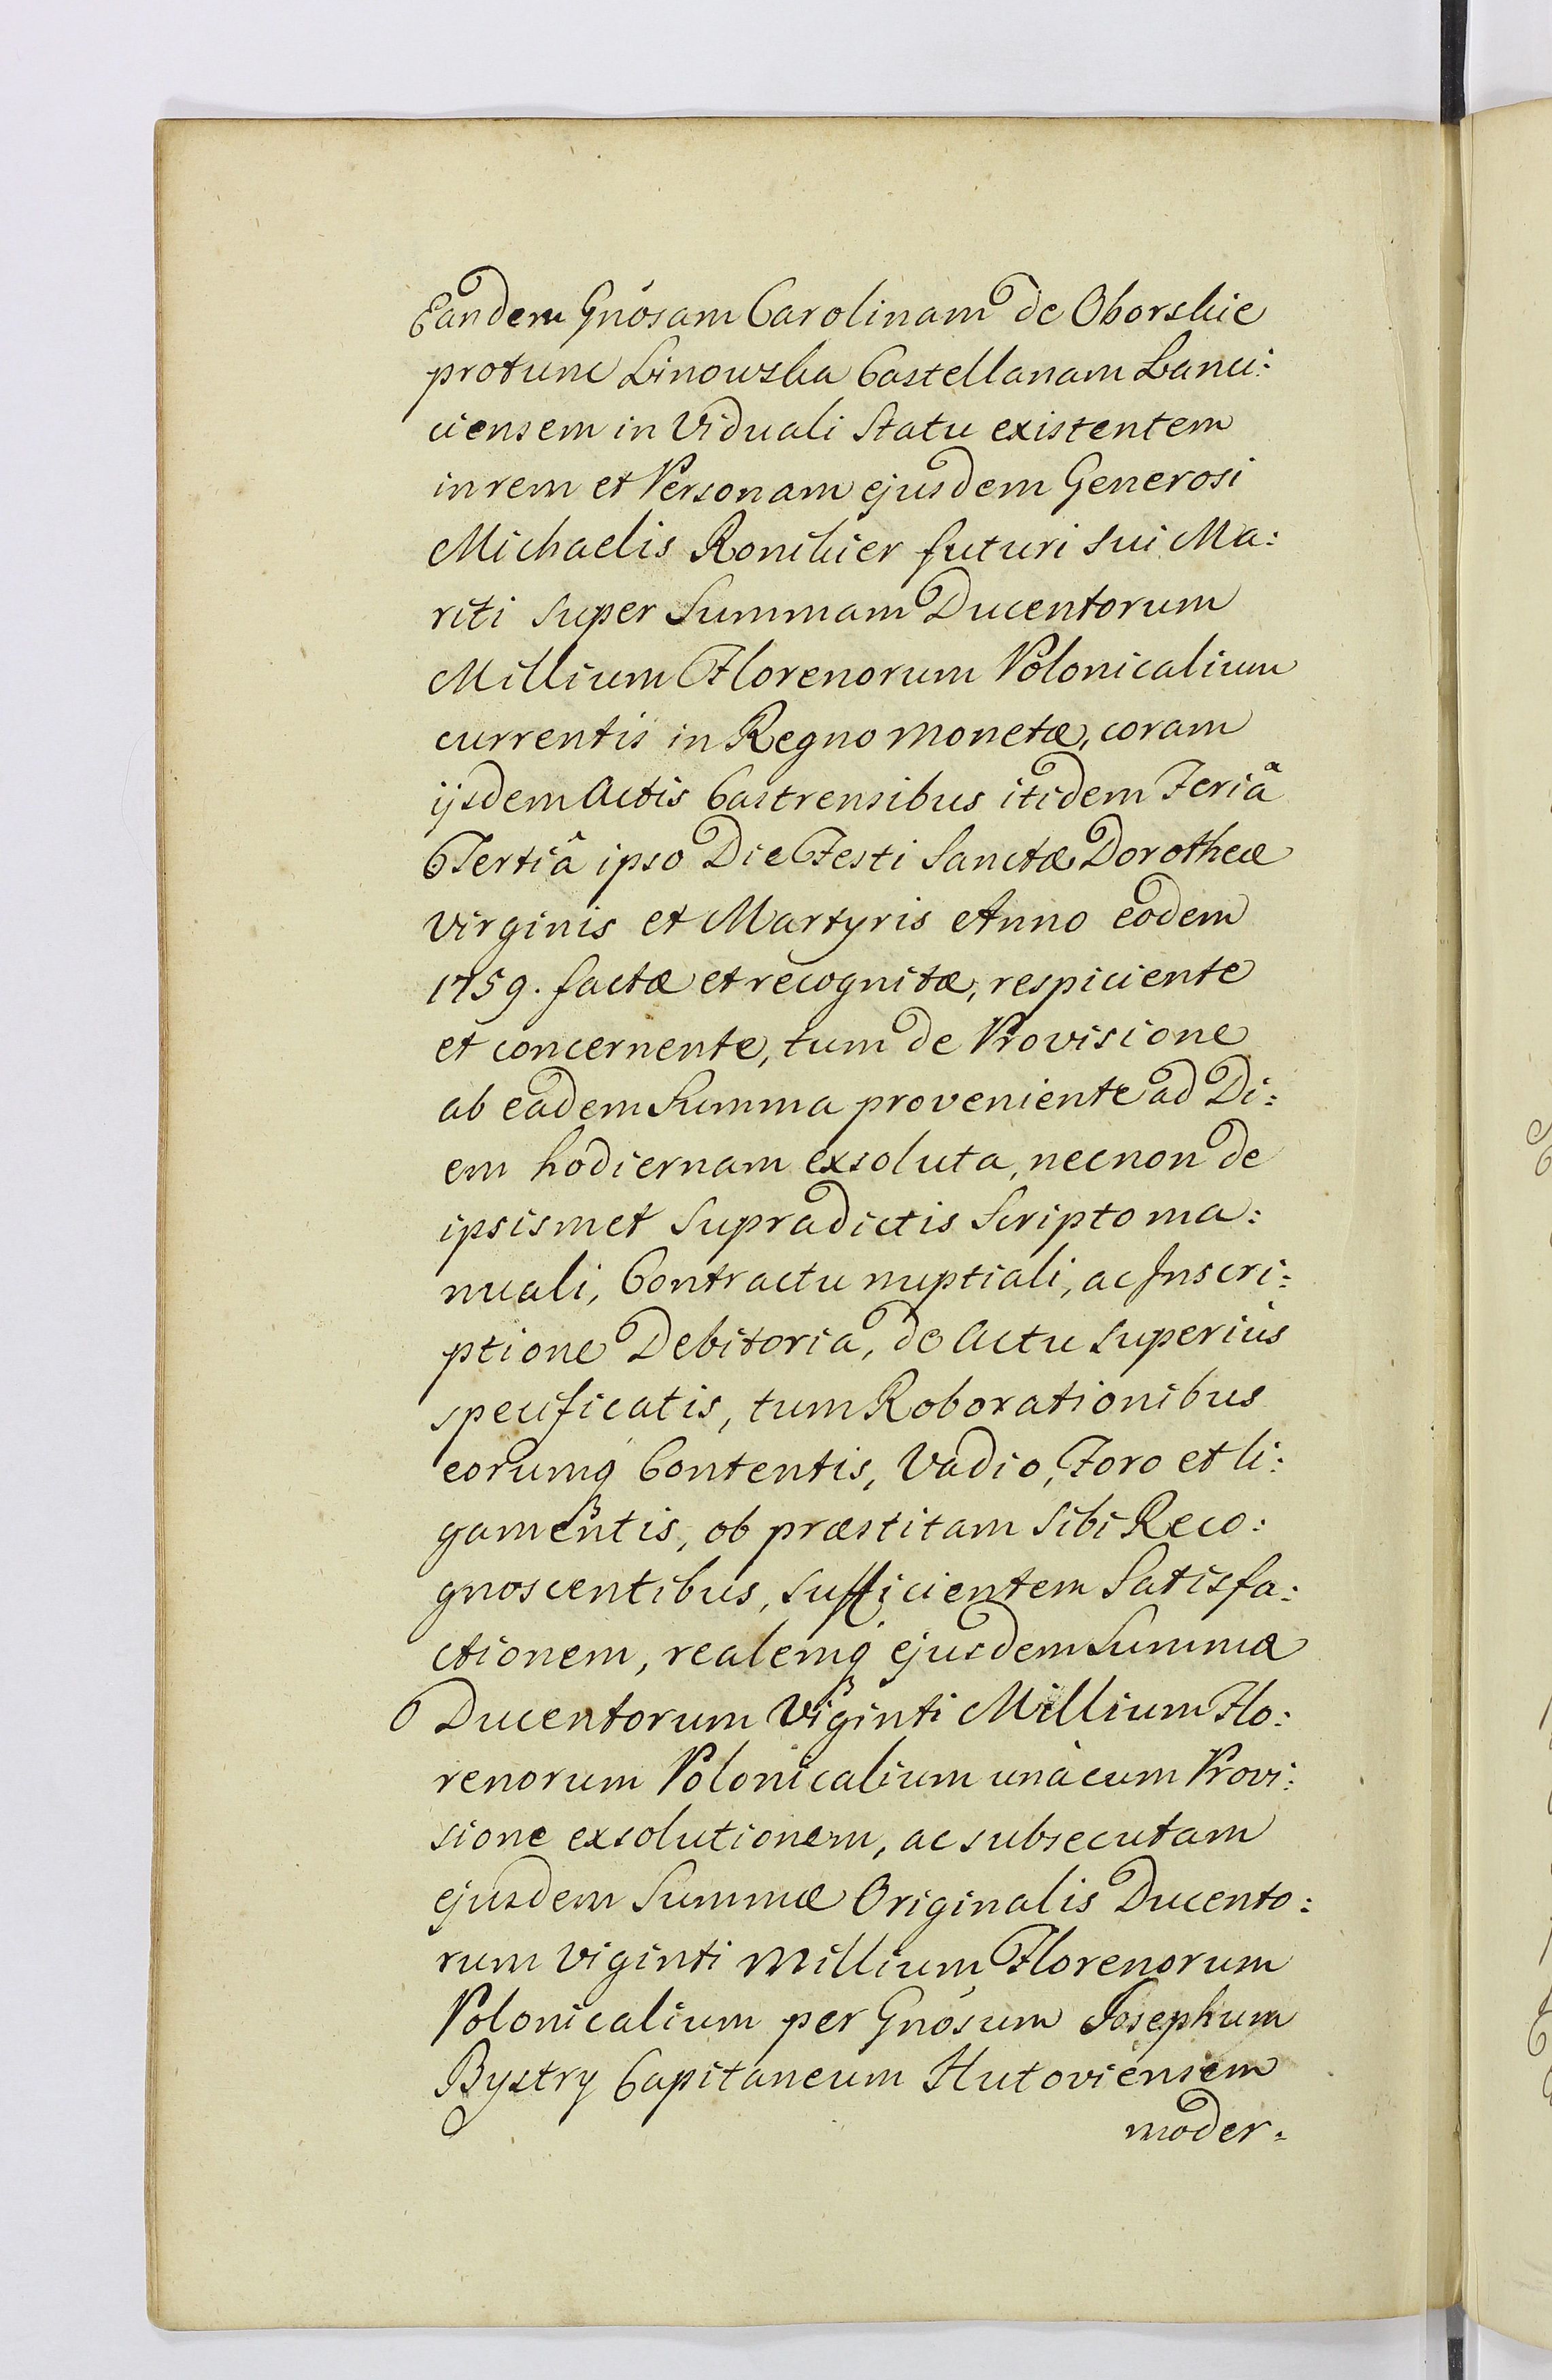 Eandem Gnosam Carolinam de Oborskie
protunc Linowska Castellanam Lanci:
ciensem in Viduali Statu existentem
in rem et Personam ejusdem Generosi
Michaelis Ronikier futuri sui Ma:
riti super Summam Ducentorum
Millium Florenorum Polonicalium
currentis in Regno monetæ, coram
ijsdem Actis Castrensibus itidem Feriâ
Tertiâ ipso Die Festi Sanctæ Dorotheæ
Virginis et Martyris Anno eodem
1759. factæ et recognitæ, respiciente
et concernente, tum de Provisione
ab eadem Summa proveniente ad Di:
em hodiernam exsoluta, necnon de
ipsismet supradictis Scripto ma:
nuali, Contractu nuptiali, ac Inscri:
ptione Debitoria, de actu superius
specificatis, tum Roborationibus
eorumq́ Contentis, Vadio, Foro et li:
gamentis, ob præstitam sibi Reco:
gnoscentibus, sufficientem Satisfa:
ctionem, realemq́ ejusdem Summæ
Ducentorum Viginti Millium Flo:
renorum Polonicalium unàcum Provi:
sione exsolutionem, ac subsecutam
ejusdem Summæ Originalis Ducento:
rum viginti Millium Florenorum
Polonicalium per Gnosum Josephum
Bystry Capitaneum Hutoviensem
moder: